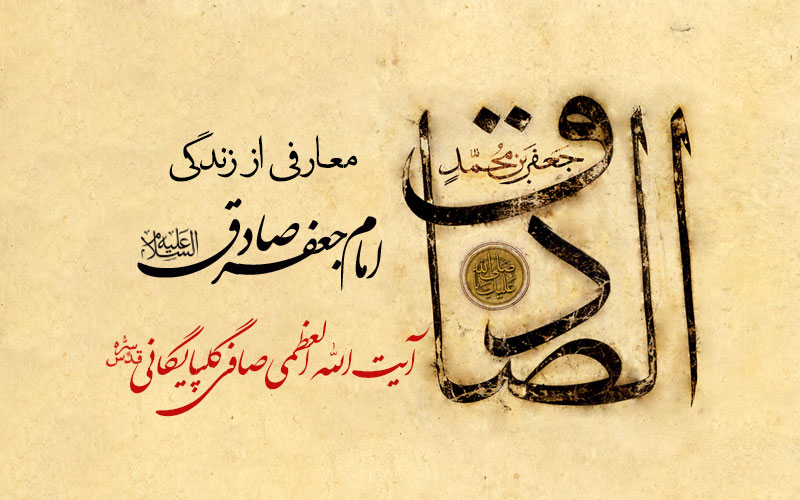 معارفی از زندگی
امام جعفر صادق علیه السلام
آیت الله العظمی صافی گلپایگانی قدس سره
الصادق
جَعفَر بن مُحَمَّدٍ
صلی الله علیک یا